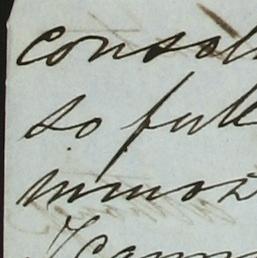 consol
so full
minor
I cann